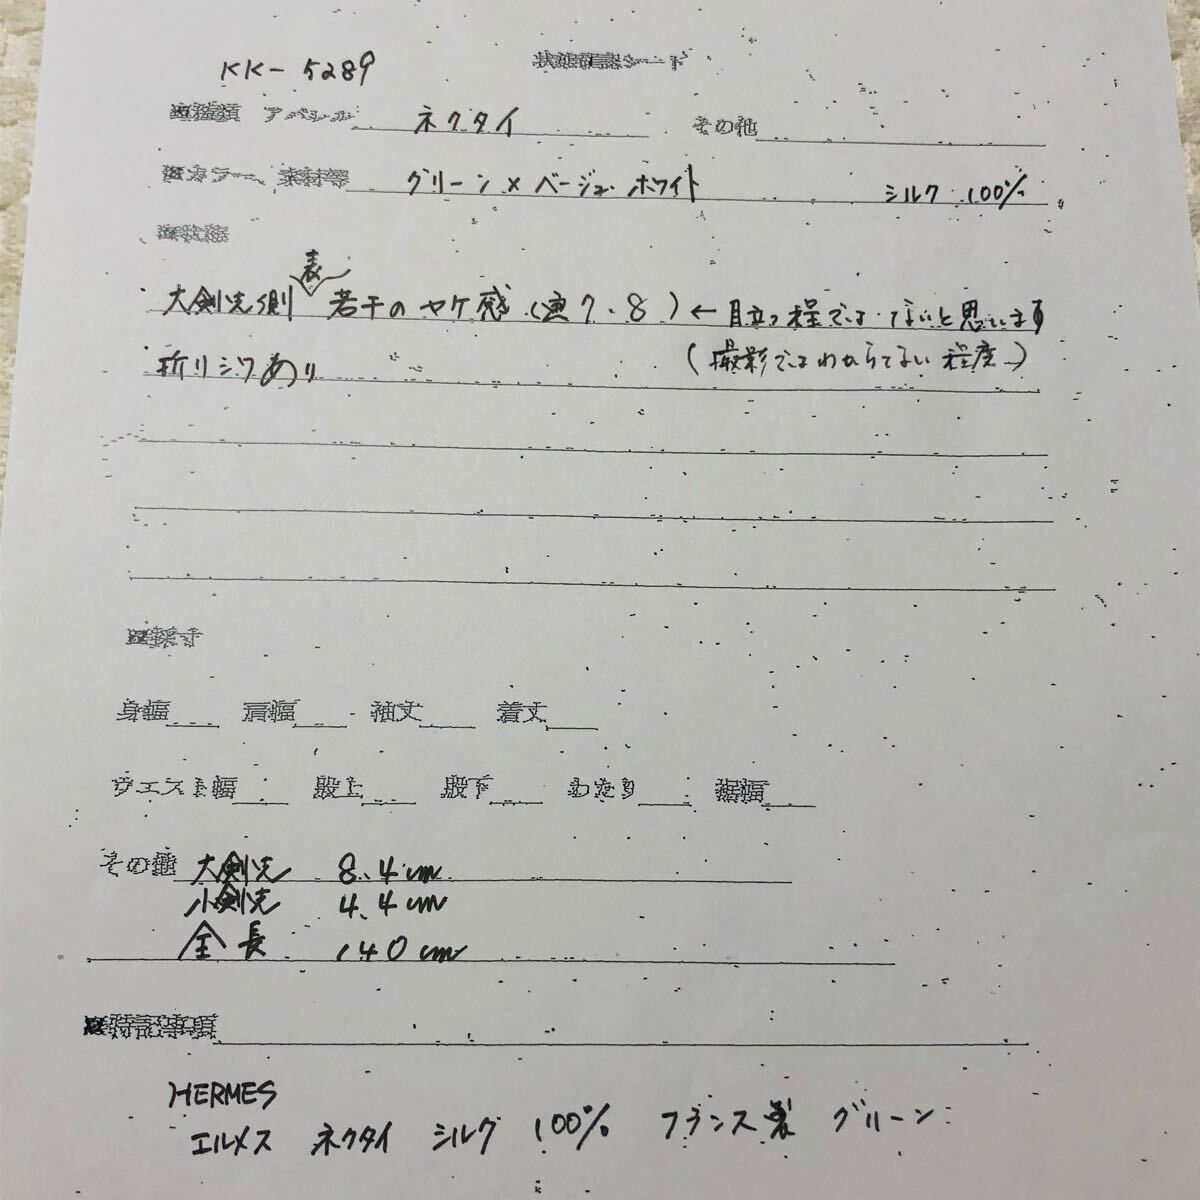 KK-5289
状態確認シート
■種類 アパレル ネクタイ その他
■カラー、素材等 グリーン×ベージュ.ホワイト シルク 100%
■状態
表
大剣先側 若干のヤケ感(画7.8)←目立つ程ではないと思います
折りシワあり (撮影ではわからない程度)
■採寸
身幅 肩幅 袖丈 着丈
ウエスト幅 股上 股下 わたり 裾幅
その他 大剣先 8.4cm
小剣先 4.4cm
全長 140cm
■特記事項
HERMES
エルメス ネクタイ シルク 100% フランス製 グリーン